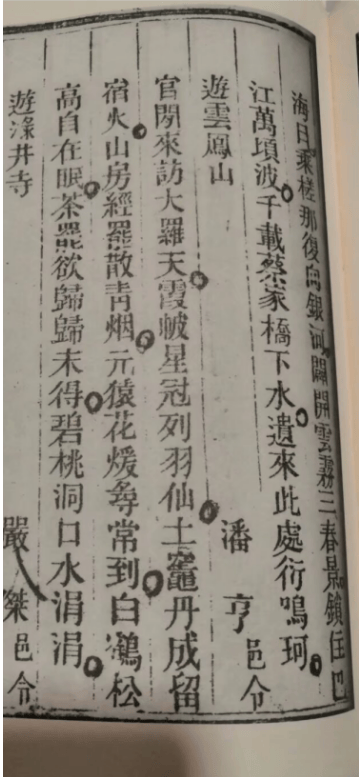 海日乘槎那復向銀河闢開雲霧三春景鎖住巴
江萬頃波千載蔡家橋下水遺來此處衍鳴珂
遊雲鳳山 潘亨邑令
官閒來訪大羅天霞帔星冠列羽仙土竈丹成留
宿火山房經罷散青烟元猿花煖尋常到白鶴松
高自在眠茶罷欲歸歸未得碧桃洞口水涓涓
遊滌井寺 嚴桀邑令